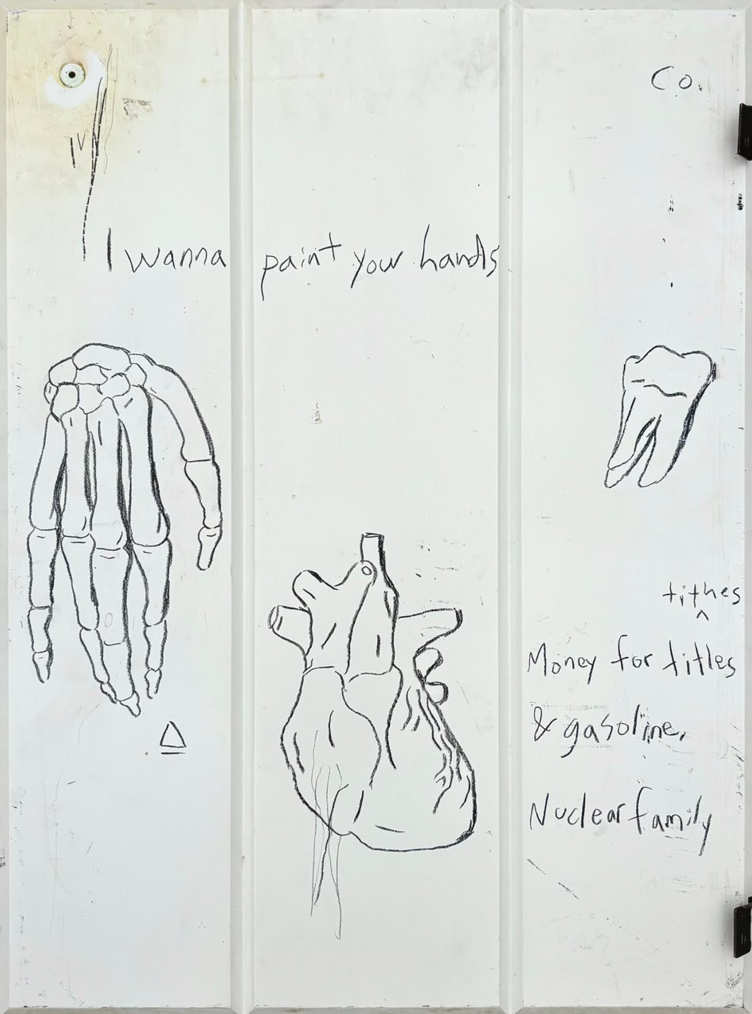 Co.
I wanna paint your hands
tithes
^
Money for titles
& gasoline,
Nuclear family